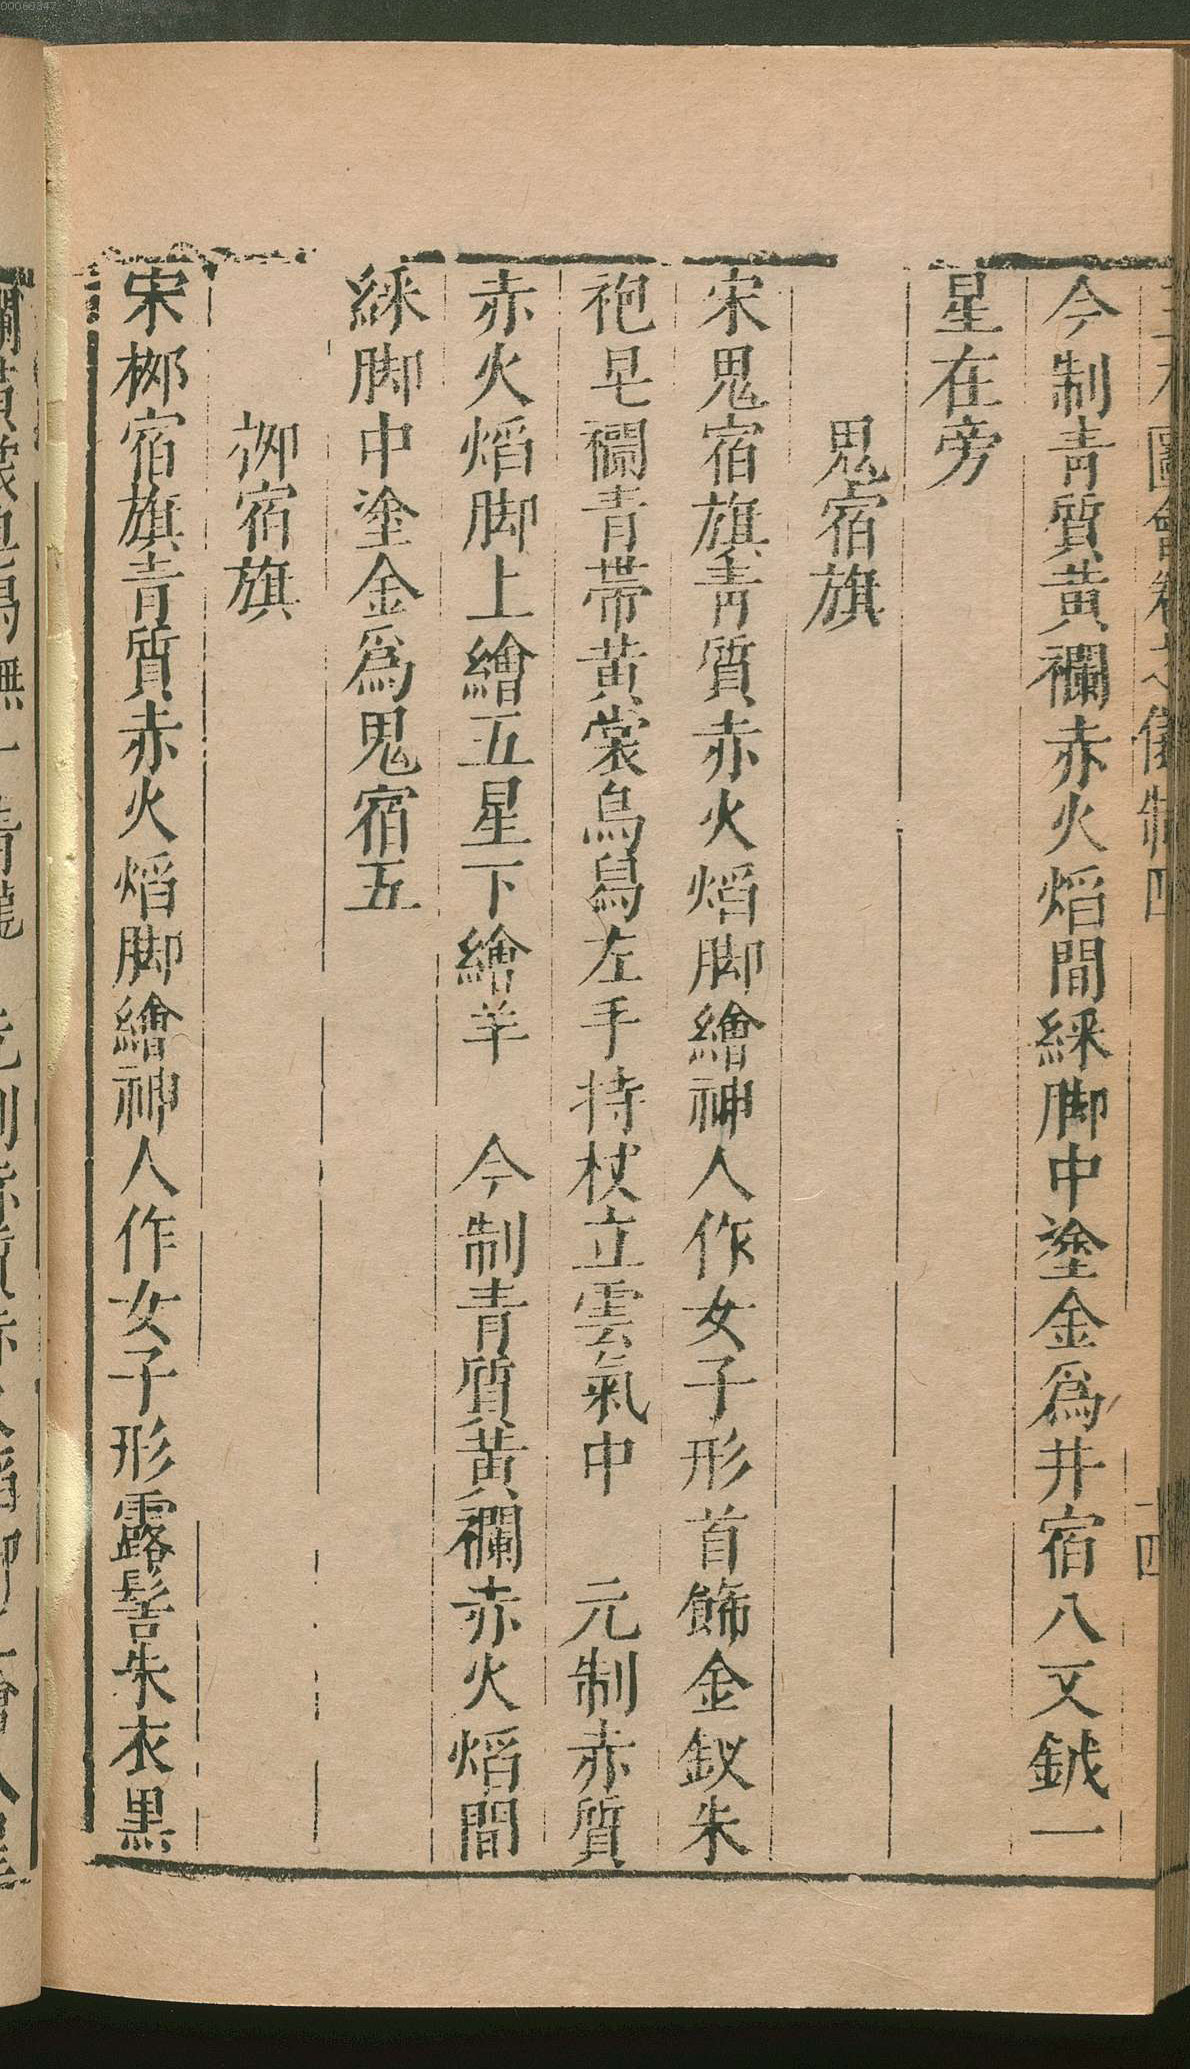 00060347
今制青質黃襴赤火熖間綵脚中塗金爲井宿八又鉞一
星在旁
鬼宿旗
宋鬼宿旗青質赤火熖脚繪神人作女子形首飾金釵朱
袍皂襴青帶黃裳烏舄左手持杖立雲氣中　元制赤質
赤火熖脚上繪五星下繪羊　今制青質黃襴赤火熖間
綵脚中塗金爲鬼宿五
栁宿旗
宋栁宿旗青質赤火熖脚繪神人作女子形露髻朱衣黒